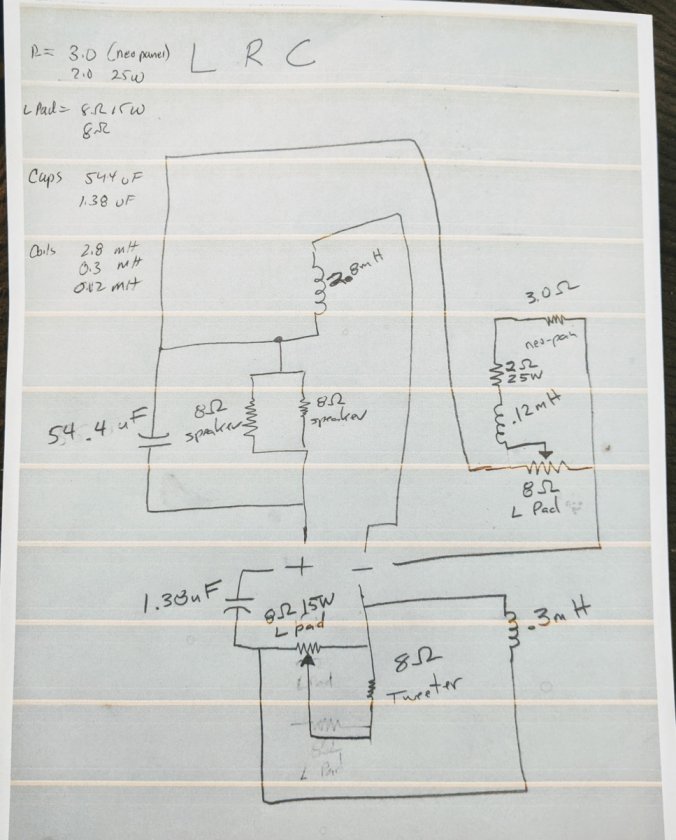 R = 3.0 (neo panel)
2.0 25W
L R C
L Pad = 8Ω 15W
8Ω
Caps 544 uF
1.38 uF
Coils 2.8 mH
0.3 mH
0.12 mH
2.8mH
3.0Ω
neo-pan
2Ω
25W
.12mH
8Ω
speaker
8Ω
speaker
54.4 uF
8Ω
L Pad
+ −
1.38uF
8Ω 15W
L pad
.3mH
8Ω
Tweeter
L Pad